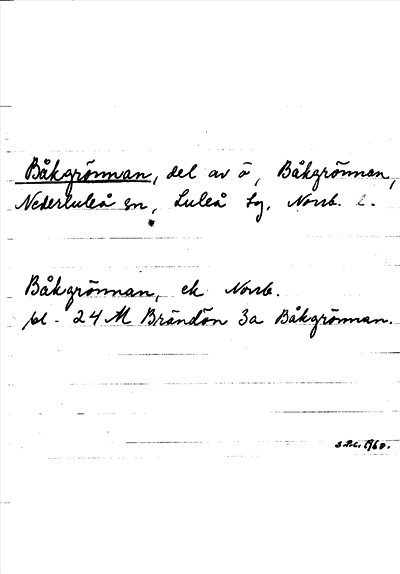 Båkgrönnan, del av ö, Båkgrönnan,
Nederluleå sn, Luleå tg. Norrb. l.
Båkgrönnan, ek Norrb.
bl. 24 M Brändön 3a Båkgrönnan.
1960.